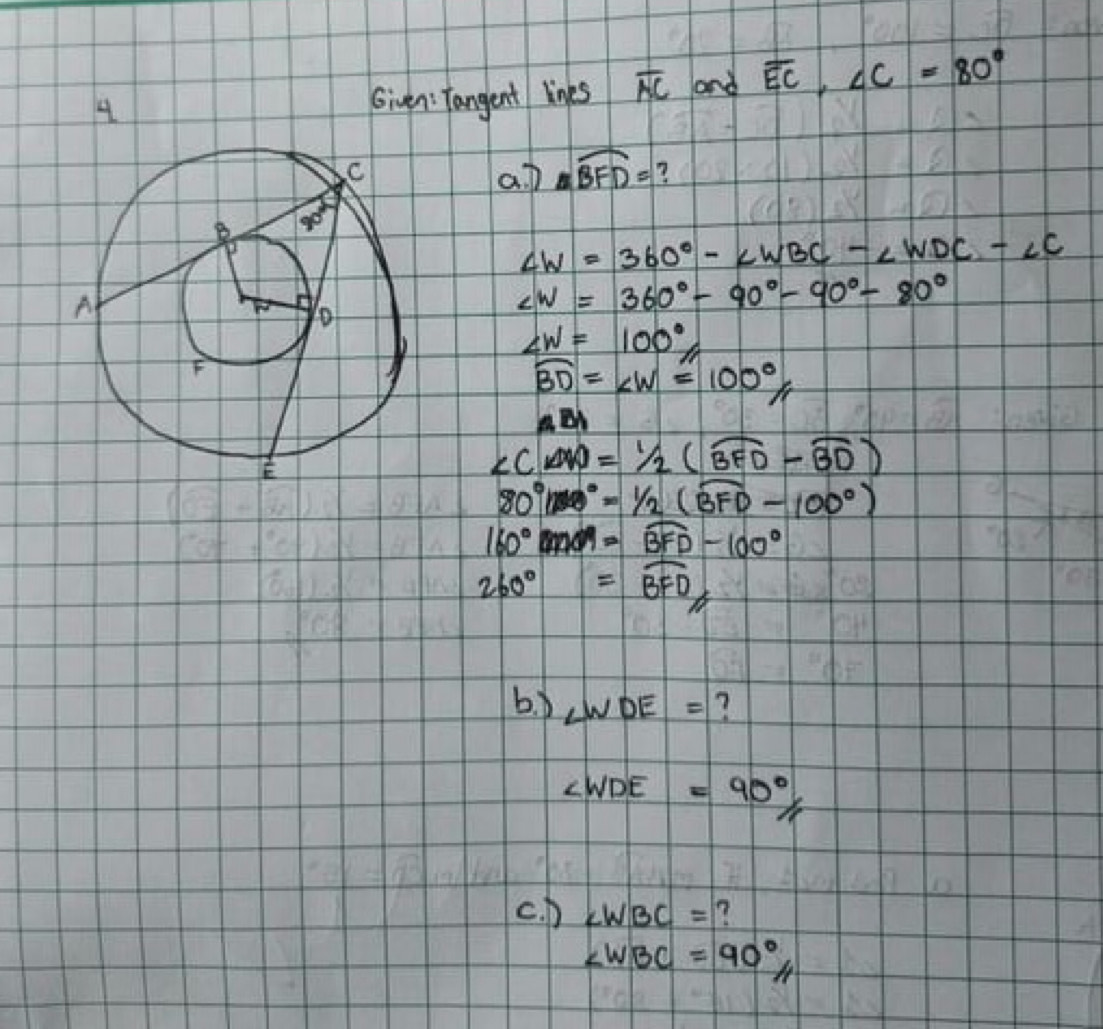 4
Given: Tangent lines A̅C̅ and E̅C̅, ∠C = 80°
C
80°
B
A
W
D
F
E
a.) BFD = ?
∠W = 360° - ∠WBC - ∠WDC - ∠C
∠W = 360° - 90° - 90° - 80°
∠W = 100°
BD = ∠W = 100°
∠C = ½ (BFD - BD)
80° = ½ (BFD - 100°)
160° = BFD - 100°
260° = BFD
b.) ∠WDE = ?
∠WDE = 90°
c.) ∠WBC = ?
∠WBC = 90°